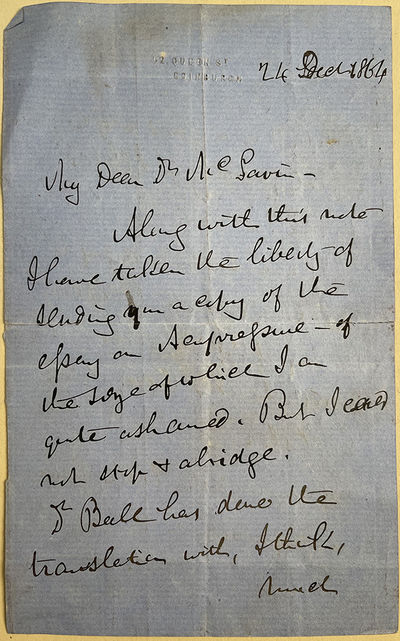 52, QUEEN ST
EDINBURGH
24 Decr 1864
My Dear Dr McGavin –
Along with this note
I have taken the liberty of
sending you a copy of the
essay on Acupressure – of
the size of which I am
quite ashamed. But I could
not stop & abridge.
Dr Ball has done the
translation with, I think,
much